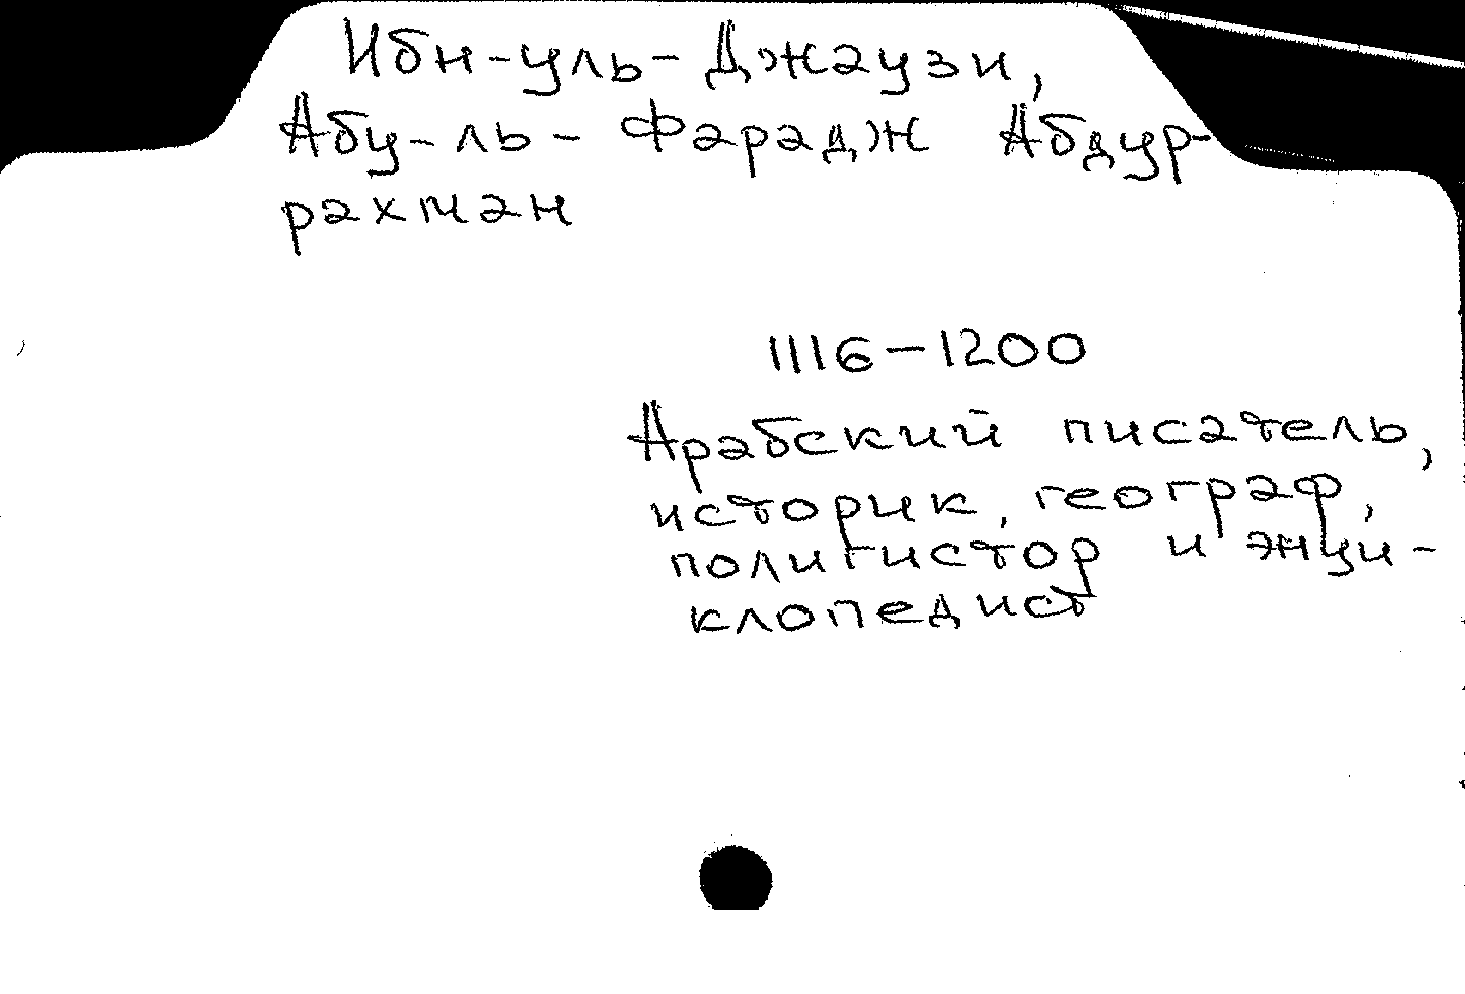 Ибн-уль-Джаузи,
Абу-ль-Фарадж Абдур-
рахман
1116-1200
Арабский писатель,
историк, географ,
полигистор и энци-
клопедист